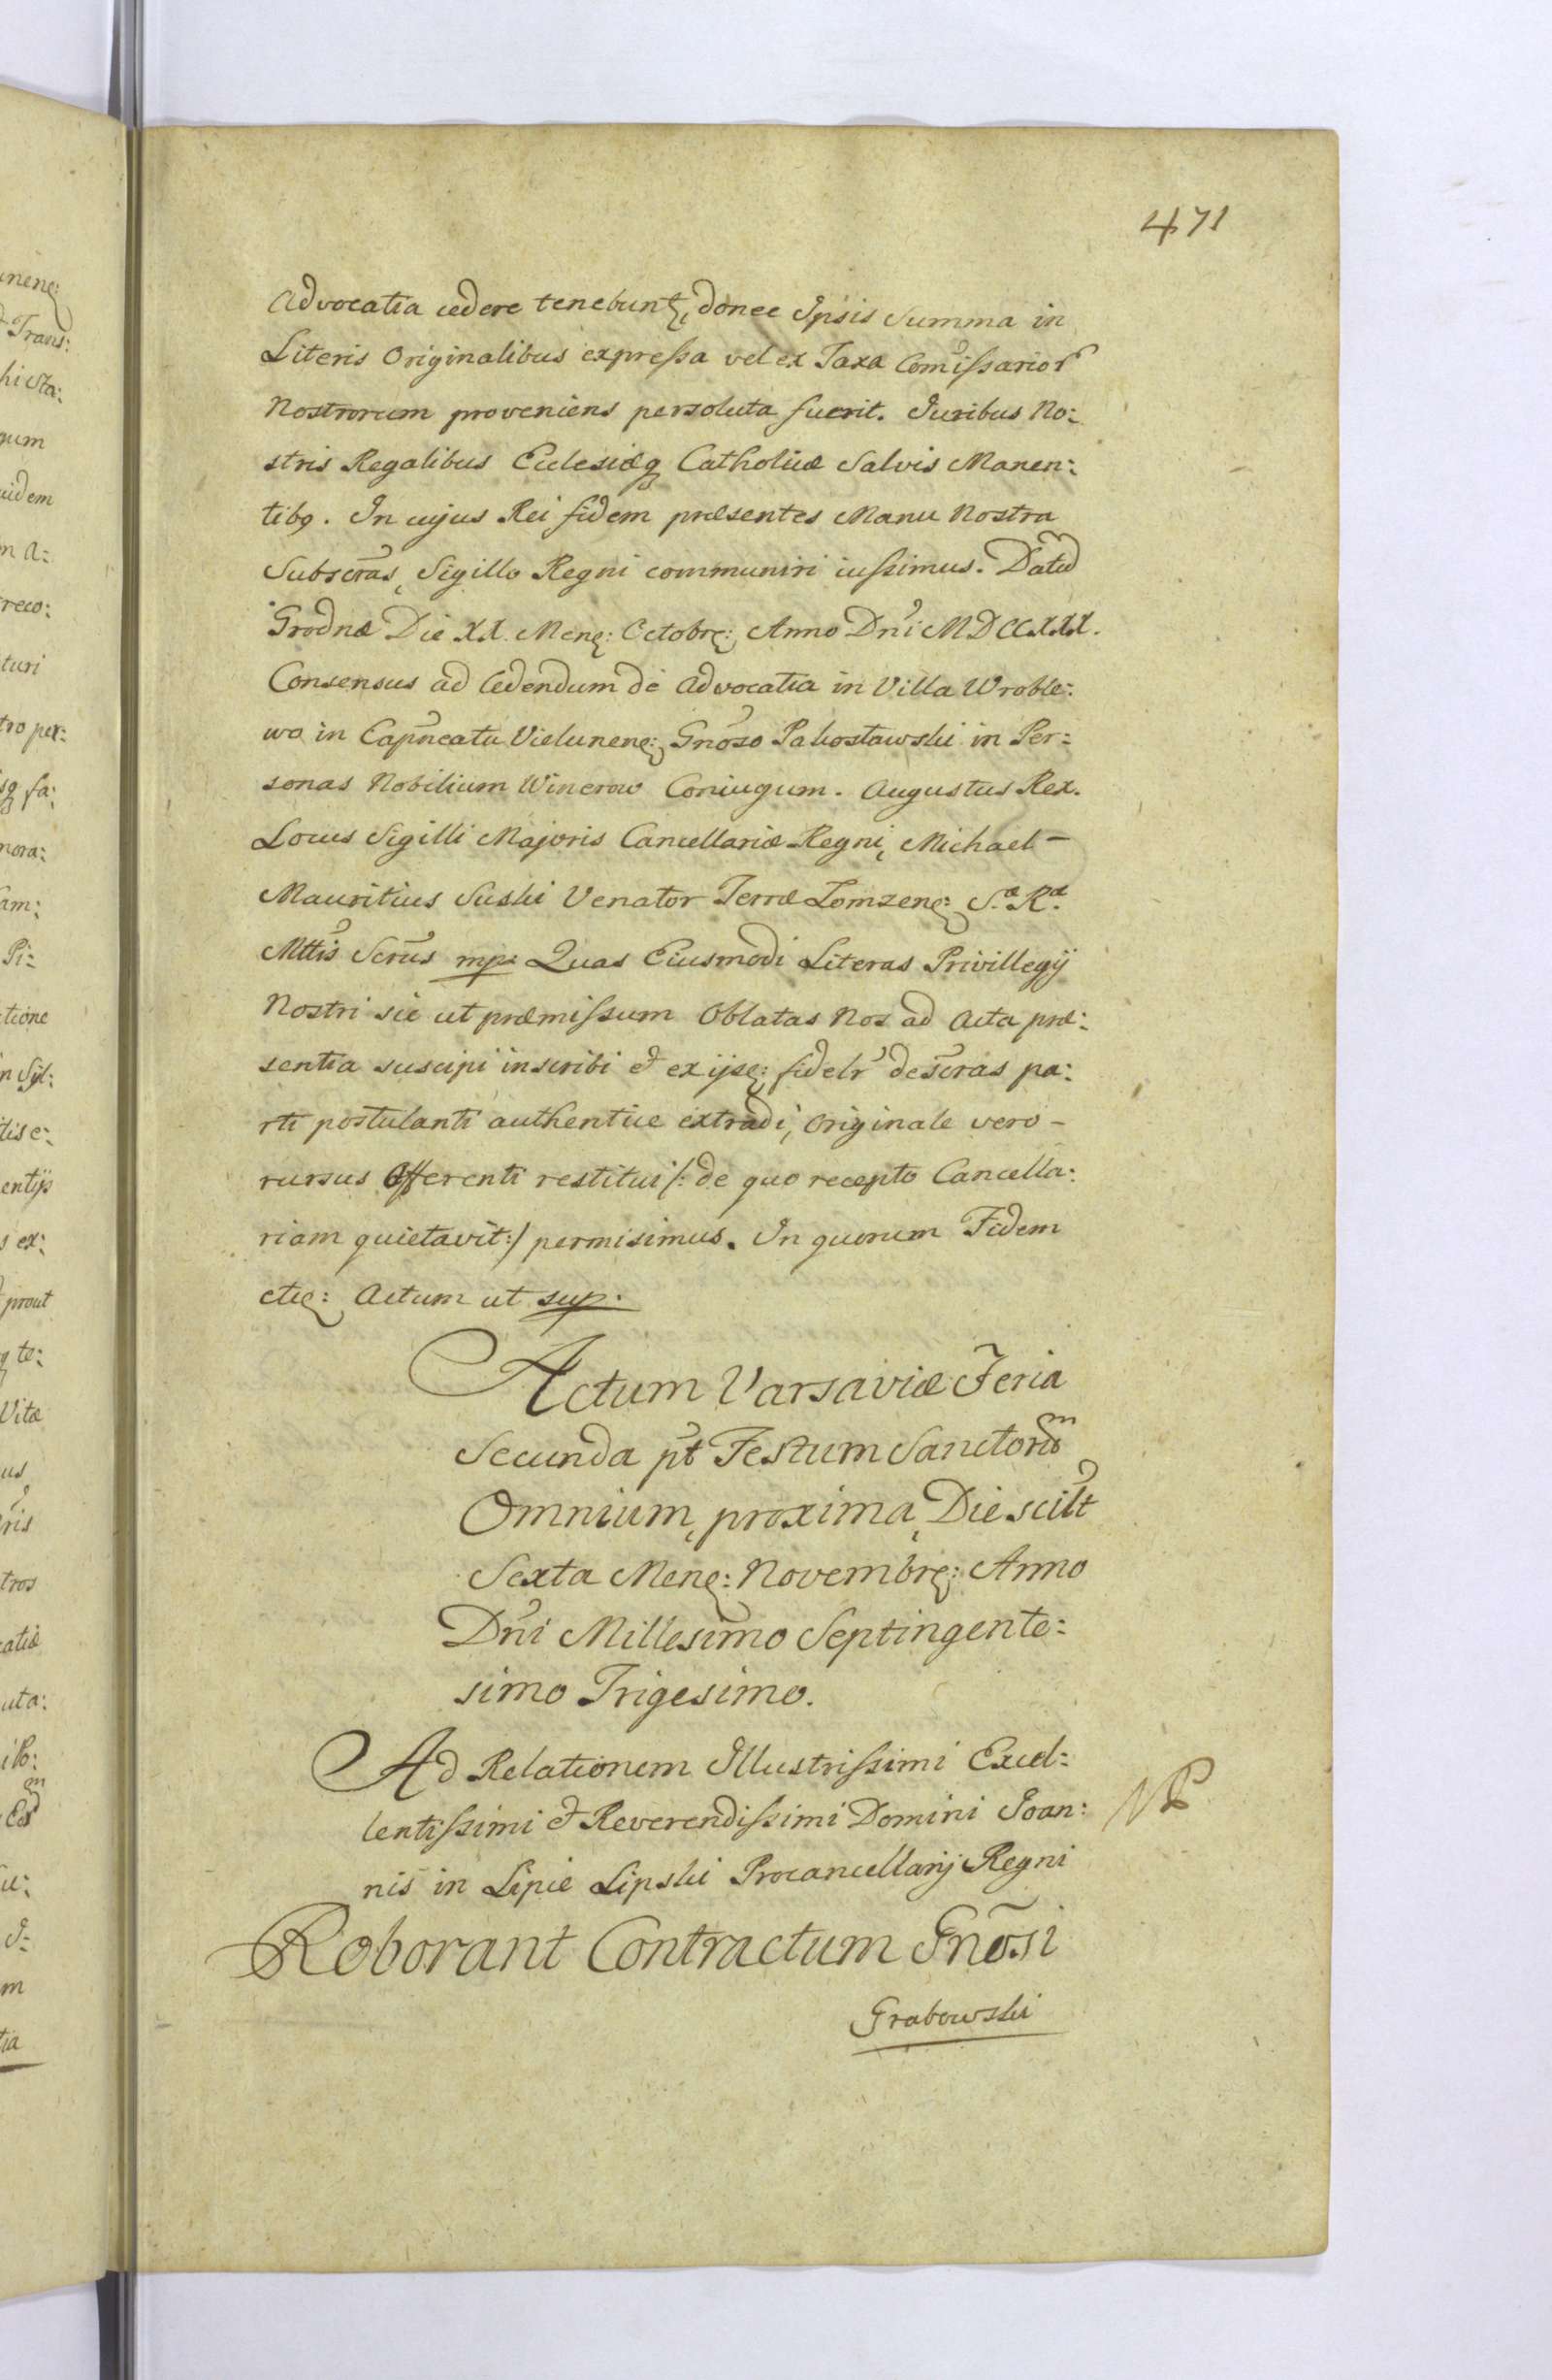 471
Advocatia cedere tenebunt, donec Ipsis Summa in
Literis Originalibus expressa vel ex Taxa Comissarior
Nostrorum proveniens persoluta fuerit. Juribus No:
stris Regalibus Ecclesiæq Catholicæ Salvis Manen:
tibq. In cujus Rei fidem præsentes Manu Nostra
Subscras, Sigillo Regni communiri iussimus. Datu
Grodnæ Die XX. Mene: Octobre: Anno Dni MDCCXXX.
Consensus ad Cedendum de Advocatia in Villa Wroble:
wo in Capneatu Vielunene: Gnoso Pakostawski in Per:
sonas Nobilium Winerow Coniugum. Augustus Rex.
Locus Sigilli Majoris Cancellariæ Regni, Michael-
Mauritius Suski Venator Terræ Lomzene: S.æ R.æ
Mttis Scrus mp: Quas Eiusmodi Literas Privillegij
Nostri sic ut præmissum Oblatas Nos ad Acta præ:
sentia suscipi inscribi & ex ijse: fidelr descras pa:
rti postulanti authentice extradi, originale vero -
rursus Offerenti restitui /: de quo recepto Cancella:
riam quietavit :/ permisimus. In quorum Fidem
etce: Actum ut sup.
Actum Varsaviæ Feria
Secunda pt Festum Sanctoru
Omnium, proxima, Die scilt
Sexta Mene: Novembre: Anno
Dni Millesimo Septingente:
simo Trigesimo.
Ad Relationem Illustrissimi Excel:
lentissimi & Reverendissimi Domini Joan:
nis in Lipie Lipski Procancellarij Regni
Roborant Contractum Gnosi
Grabowski